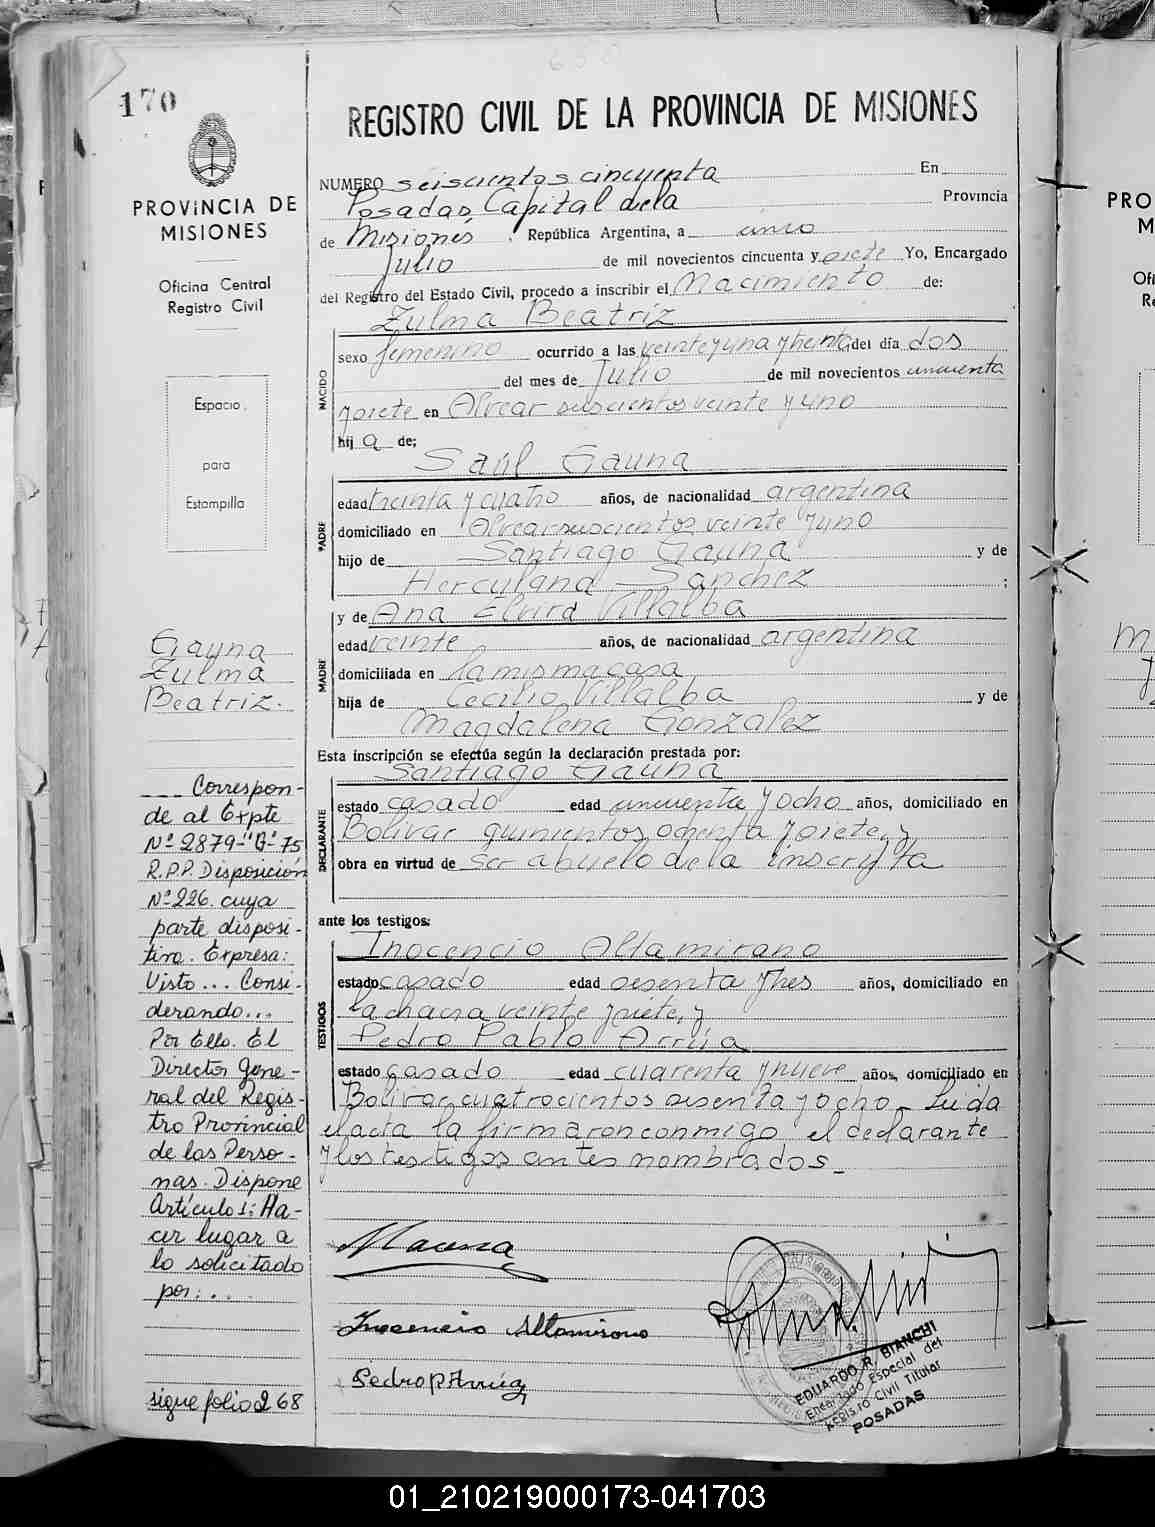 170
REGISTRO CIVIL DE LA PROVINCIA DE MISIONES
PROVINCIA DE
MISIONES
Oficina Central
Registro Civil
Espacio
para
Estampilla
NUMERO seiscientos cincuenta En
Posadas Capital dela Provincia
de Misiones. República Argentina, a cinco
Julio de mil novecientos cincuenta y siete Yo, Encargado
del Registro del Estado Civil, procedo a inscribir el Nacimiento de:
Zulma Beatriz
NACIDO
sexo femenino ocurrido a las veinte y una y treinta del día dos
del mes de Julio de mil novecientos cincuenta
y siete en Alvear seiscientos veinte y uno
hij a de;
Saúl Gauna
PADRE
edad treinta y cuatro años, de nacionalidad argentina
domiciliado en Alvear seiscientos veinte y uno
hijo de Santiago Gauna y de
Herculana Sanchez ;
y de Ana Elvira Villalba
MADRE
edad veinte años, de nacionalidad argentina
domiciliada en la misma casa
hija de Cecilio Villalba y de
Magdalena Gonzalez
Esta inscripción se efectúa según la declaración prestada por:
Santiago Gauna
DECLARANTE
estado casado edad cincuenta y ocho años, domiciliado en
Bolivar quinientos ochenta y siete, y
obra en virtud de ser abuelo de la inscripta
ante los testigos:
Inocencio Altamirano
TESTIGOS
estado casado edad sesenta y tres años, domiciliado en
la chacra veinte y siete, y
Pedro Pablo Arrúa
estado casado edad cuarenta y nueve años, domiciliado en
Bolivar cuatrocientos sesenta y ocho - Leida
el acta la firmaron conmigo, el declarante
y los testigos antes nombrados_
Gauna
Zulma
Beatriz.
Correspon-
de al Expte
Nº 2879-"G"-75
R.P.P. Disposición
Nº 226. cuya
parte disposi-
tiva. Expresa:
Visto... Consi-
derando...
Por Ello. El
Director Gene-
ral del Regis-
tro Provincial
de las Perso-
nas. Dispone
Artículo 1: Ha-
cer lugar a
lo solicitado
por: . . .
sigue folio 268
Inocencio Altamirano
Pedro P Arrúa
EDUARDO R. BIANCHI
Encargado Especial del
Registro Civil Titular
POSADAS
PRO
M
Ofi
Re
01_210219000173-041703